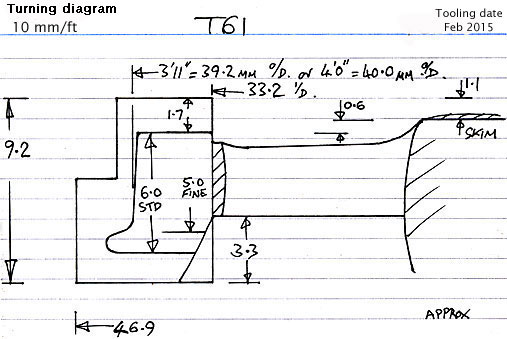 Turning diagram
10 mm/ft
T61
Tooling date
Feb 2015
3'11" = 39.2 MM O/D. or 4'0" = 40.0 MM O/D.
33.2 I/D.
1.1
1.7
0.6
SKIM
9.2
6.0
STD
5.0
FINE
3.3
46.9
APPROX